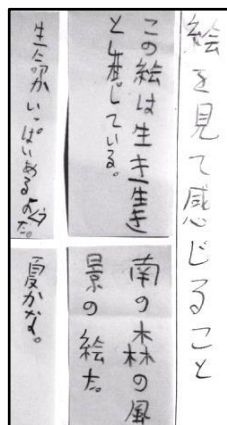 絵を見て感じること
この絵は生き生き
と感じている。
南の森の風
景の絵だ。
生命がいっぱいあるようだ。
夏かな。